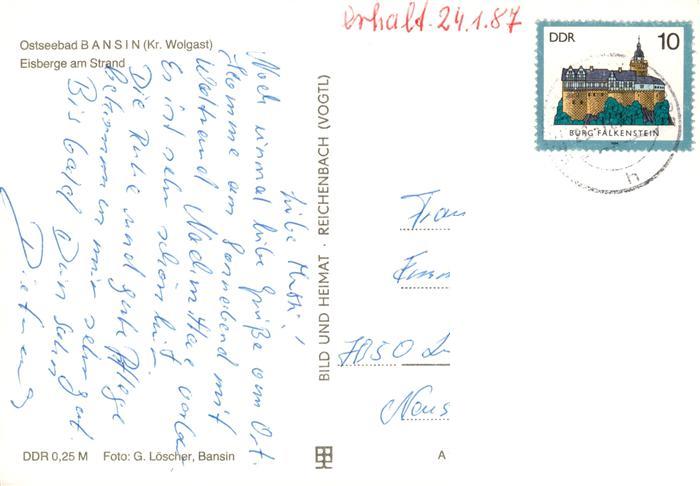 erhalt. 24.1.87
Ostseebad BANSIN (Kr. Wolgast)
Eisberge am Strand
Liebe Mutti!
Noch einmal liebe Grüße vom Ort.
Komme am Sonnabend mit
Waltraud Nachmittag vorbei
Es ist sehr schön hier.
Die Ruhe und gute Pflege
bekommen mir sehr gut.
Bis bald Dein Sohn
Dietmar
BILD UND HEIMAT · REICHENBACH (VOGTL)
DDR 10
BURG FALKENSTEIN
Frau
7050
DDR 0,25 M Foto: G. Löscher, Bansin
A